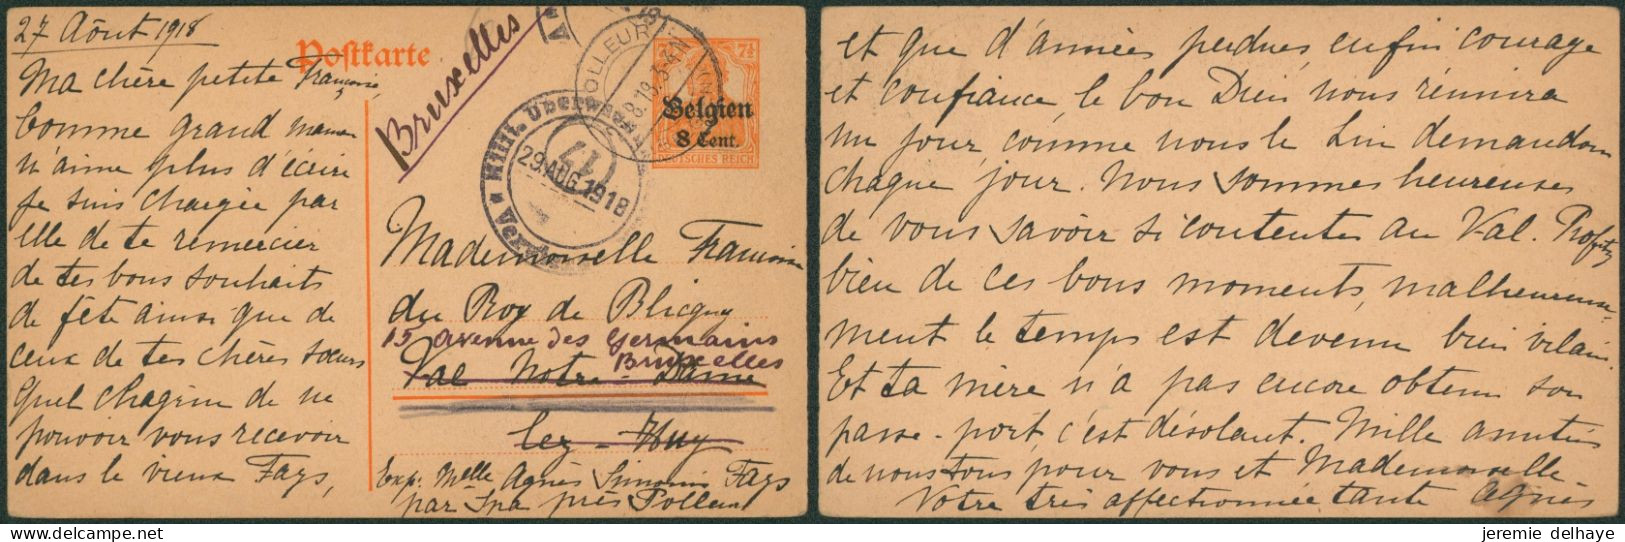 27 Août 1918
Postkarte
Ma chère petite Françoise,
Comme grand maman
n'aime plus d'écire
je suis chargée par
elle de te remercier
de tes bons souhaits
de fête ainsi que de
ceux de tes chères soeurs
Quel chagrin de ne
pouvoir vous recevoir
dans le vieux Fays,
Bruxelles
7½ 7½
Belgien
8 Cent.
DEUTSCHES REICH
Milit. Überwachung
29 AUG. 1918
Mademoiselle Françoise
du Roy de Blicquy
15 avenue des Germains
Bruxelles
Val Notre-Dame
lez-Huy
Exp: Melle Agnès Simonis Fays
par Spa près Polleur
et que d'années perdues, enfin courage
et confiance le bon Dieu nous réunira
un jour, comme nous le Lui demandons
chaque jour. Nous sommes heureuses
de vous savoir si contentes au Val. Profitez
bien de ces bons moments, malheureuse-
ment le temps est devenu bien vilain
Et ta mère n'a pas encore obtenu son
passe-port c'est désolant. Mille amitiés
de nous tous pour vous et Mademoiselle-
Votre très affectionnée tante Agnès
jeremie delhaye